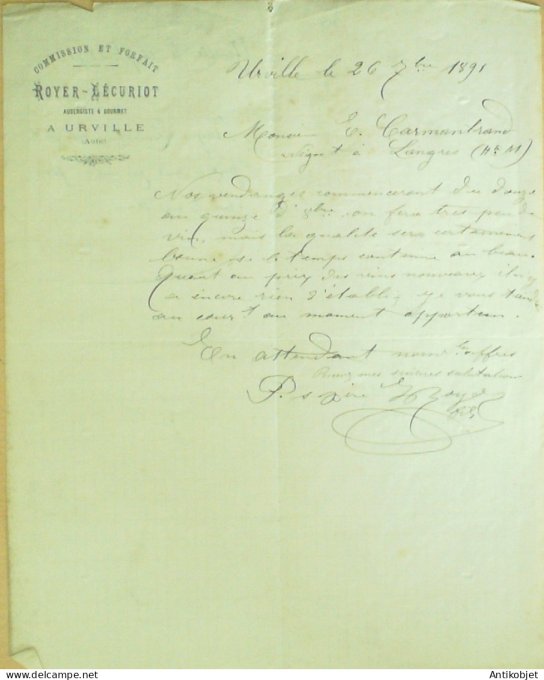 COMMISSION ET FORFAIT
ROYER-LÉCURIOT
AUBERGISTE & GOURMET
A URVILLE
(Aube)
Urville le 26 7bre 1891
Monsieur E. Carmantrand
Négt à Langres (Hte M)
Nos vendanges commenceront du douze
au quinze d'8bre on fera très peu de
vin, mais la qualité sera certainement
bonne, si le temps continue au beau.
Quant au prix des vins nouveaux il n'y
a encore rien d'établi, je vous
au cour au moment
En attendant
mes sincères salutation
P. s père Royer
Antikobjet